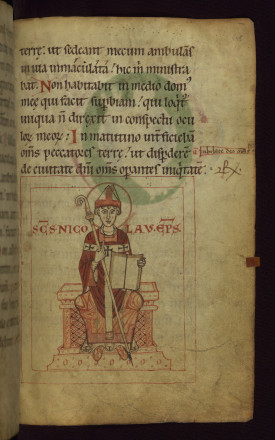 terre: ut sedeant mecum ambulās
in uia inmaculata, hic m ministra
bat. Non habitabit in medio dom'
meę qui facit supbiam: qui loqt̄
iniqua n̄ direxit in conspectu ocu
lor meor: In matutino int̄ficiebā
om̄s peccatores terrę: ut disp̄derē
de ciuitate dn̄i om̄s opantes iniqtatē.
SC̄S NICO LAVS EP̄S